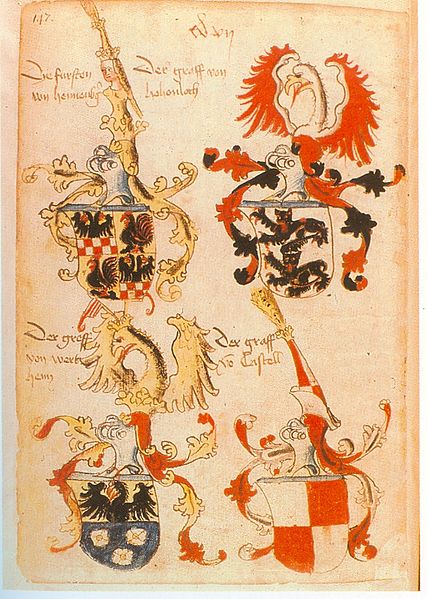 147.
Die fursten
von hennenbg
Der graff von
hohenloch
Der graff
von wert
heim
Der graff
vo Castell